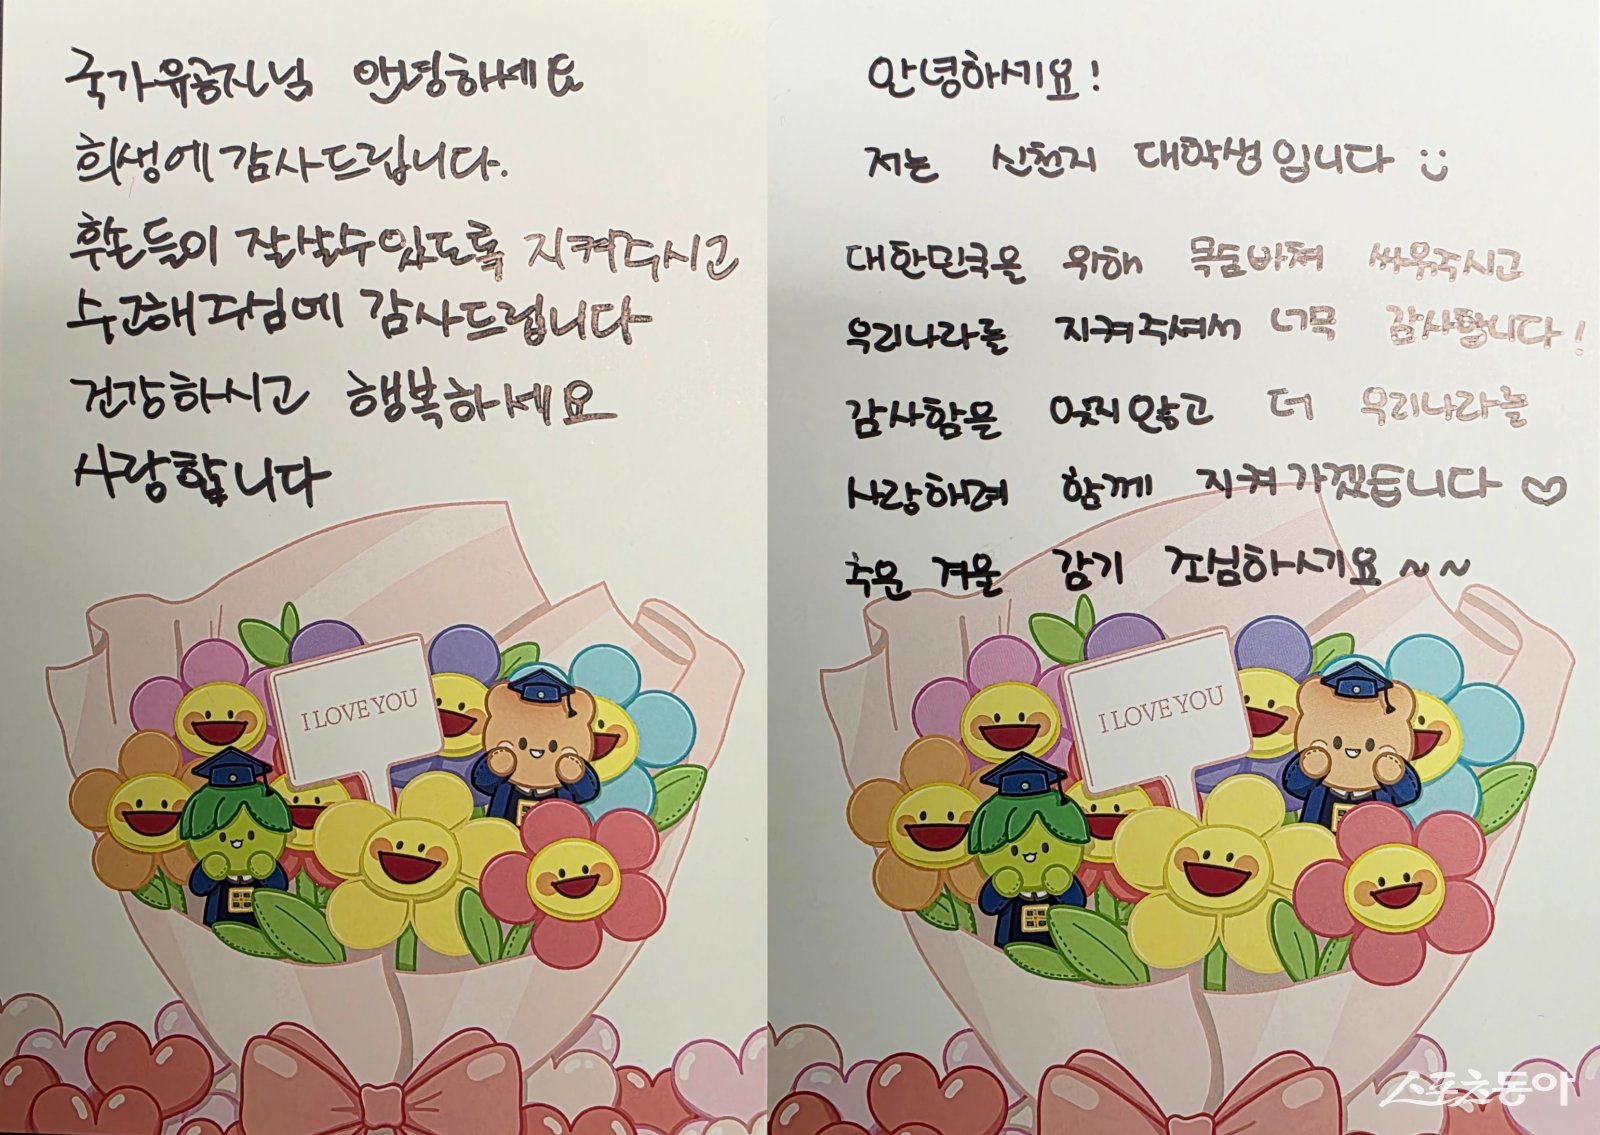 국가유공자님 안녕하세요
희생에 감사드립니다.
후손들이 잘 살 수 있도록 지켜주시고
수고해주심에 감사드립니다
건강하시고 행복하세요
사랑합니다
I LOVE YOU
안녕하세요!
저는 신천지 대학생입니다
대한민국을 위해 목숨바쳐 싸워주시고
우리나라를 지켜주셔서 너무 감사합니다!
감사함을 잊지 않고 더 우리나라를
사랑하며 함께 지켜 가겠습니다 ♡
추운 겨울 감기 조심하세요~~
I LOVE YOU
스포츠동아